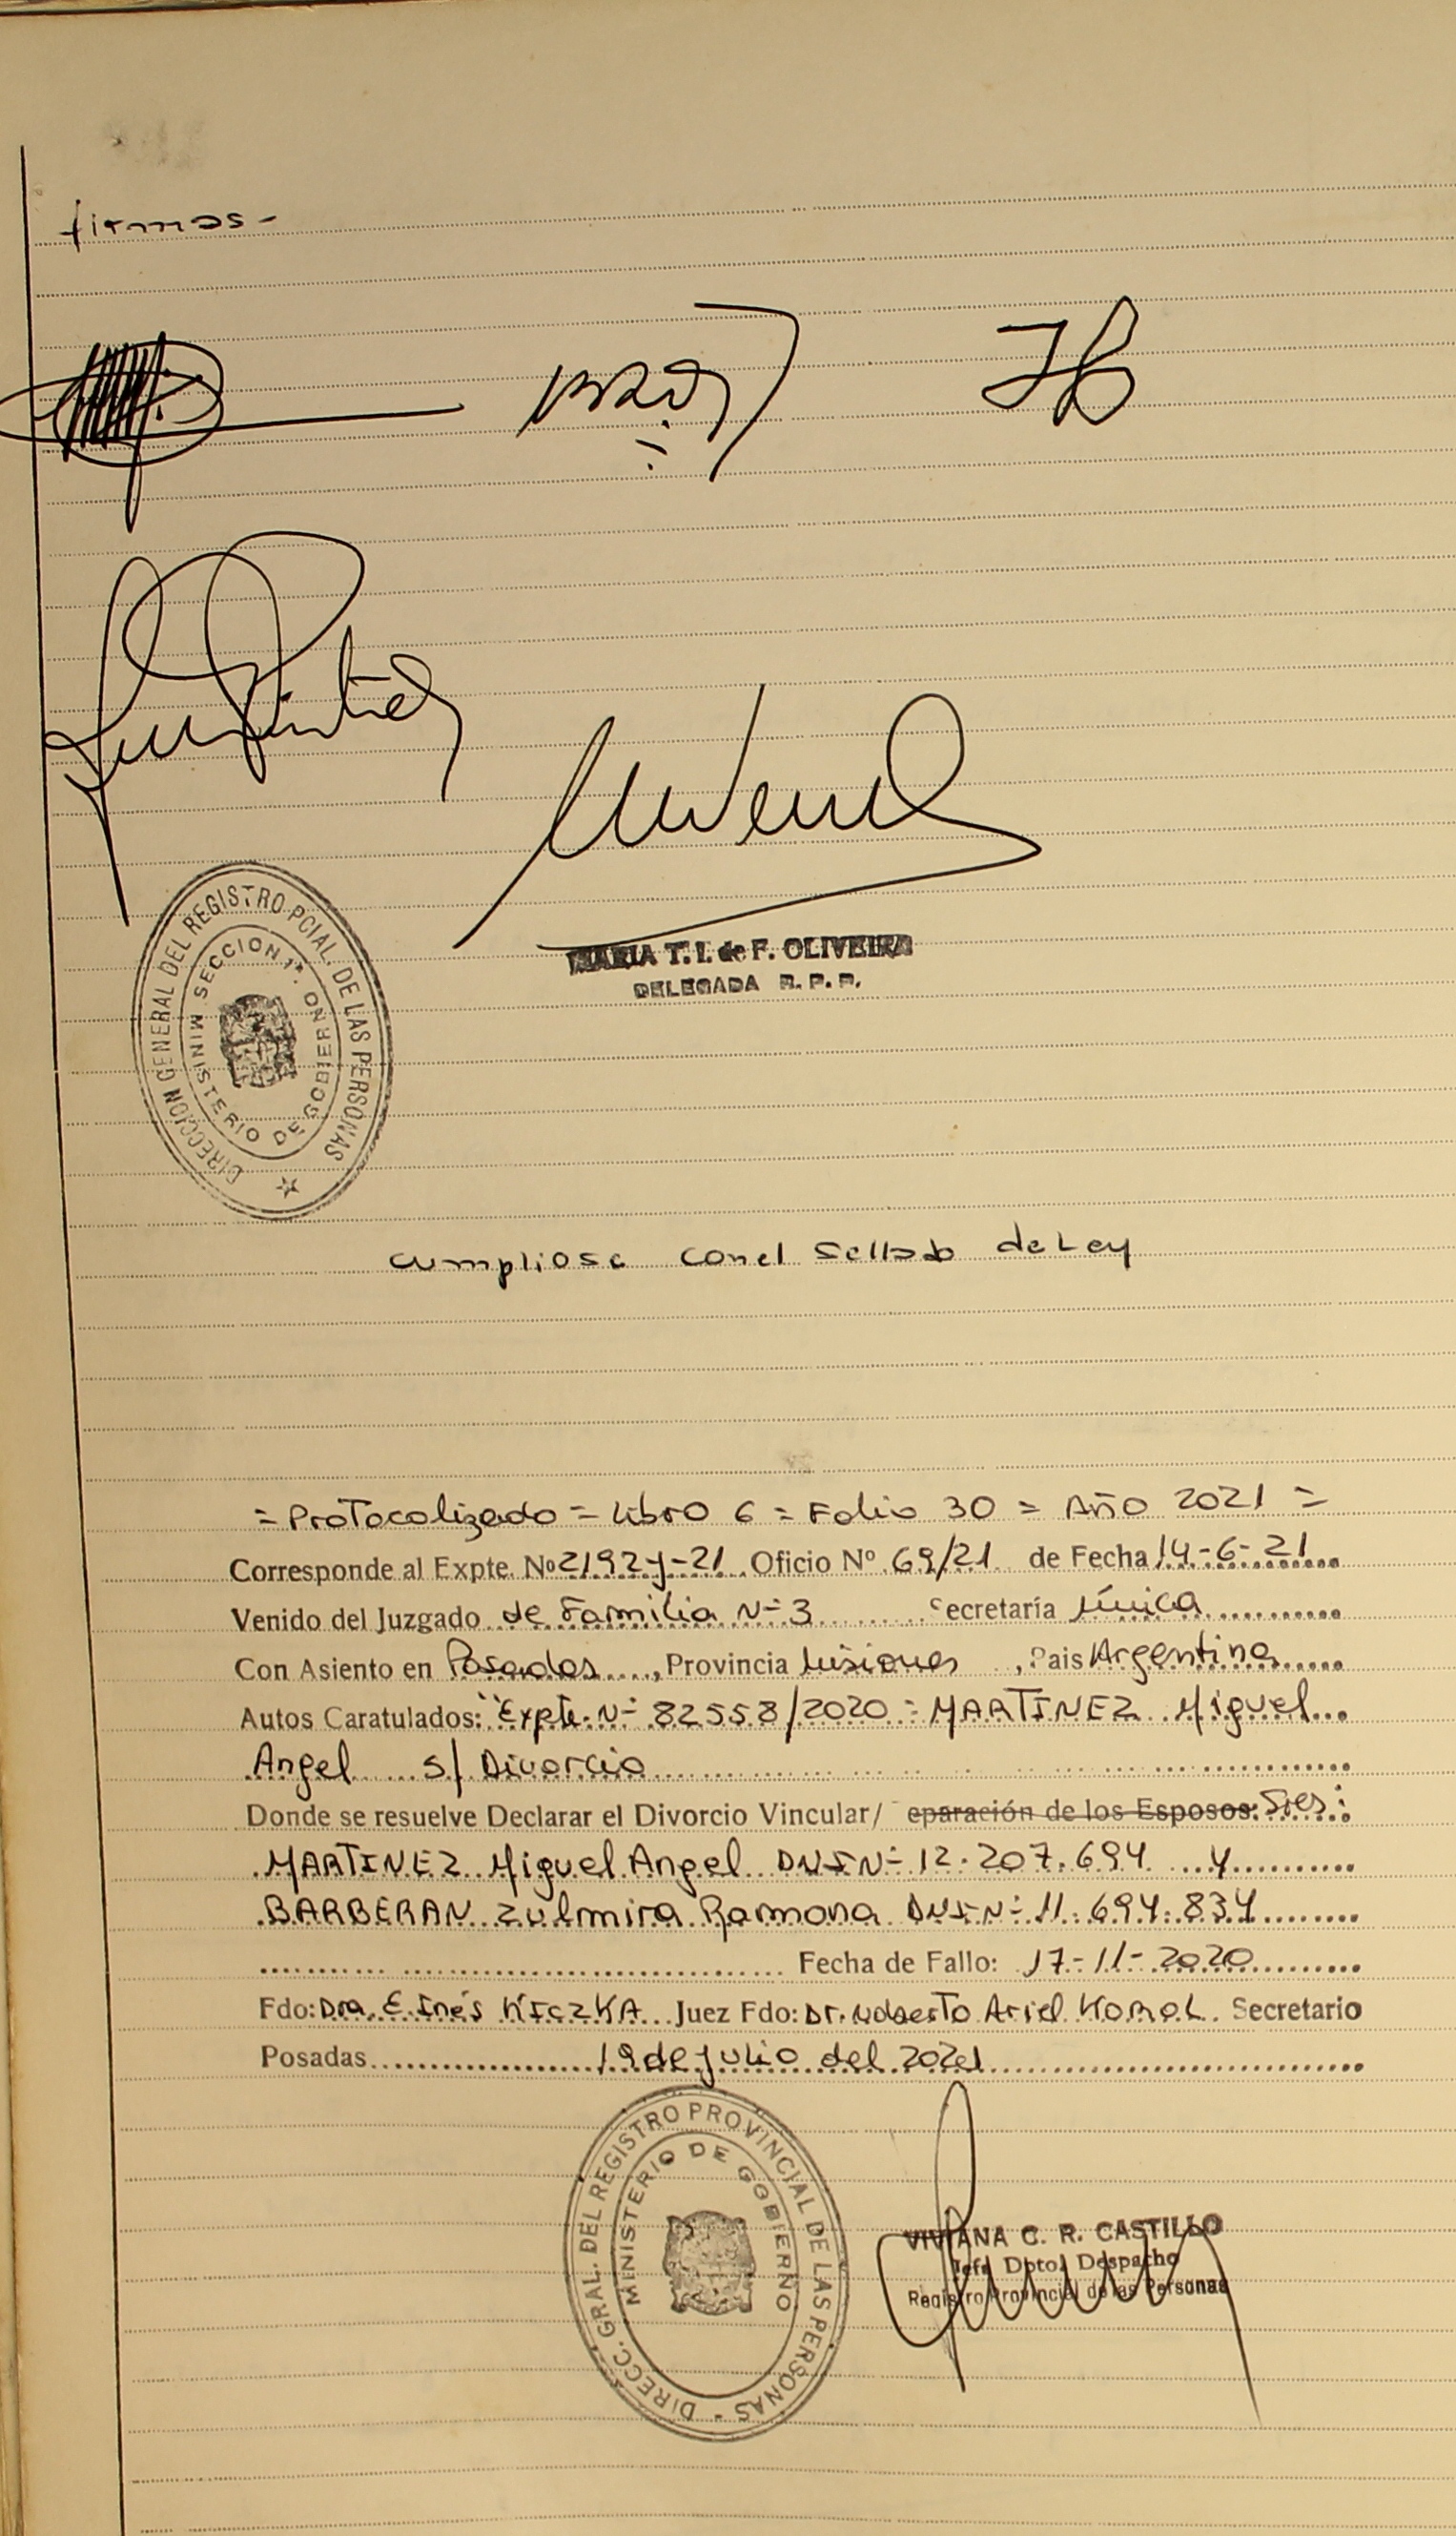 firmas -
DIRECCION GENERAL DEL REGISTRO PCIAL. DE LAS PERSONAS
SECCION 1ª.
MINISTERIO DE GOBIERNO
MARIA T. I. de F. OLIVEIRA
DELEGADA R. P. P.
cumpliose con el sellado de Ley
= Protocolizado = Libro 6 = Folio 30 = Año 2021 =
Corresponde al Expte. Nº 2192 y-21 Oficio Nº 69/21 de Fecha 14-6-21
Venido del Juzgado de Familia Nº 3 Secretaría Única
Con Asiento en Posadas, Provincia Misiones, Pais Argentina
Autos Caratulados: "Expte. Nº 82558/2020 - MARTINEZ Miguel
Angel s/ Divorcio
Donde se resuelve Declarar el Divorcio Vincular/ eparación de los Esposos: Sres:
MARTINEZ Miguel Angel DNI Nº 12.207.694 y
BARBERAN Zulmira Ramona DNI Nº 11.694.834
Fecha de Fallo: 17-11-2020
Fdo: Dra. E. Inés KICZKA Juez Fdo: Dr. Norberto Ariel Secretario
Posadas 19 de julio del 2021
DIRECC. GRAL. DEL REGISTRO PROVINCIAL DE LAS PERSONAS
MINISTERIO DE GOBIERNO
VIVIANA C. R. CASTILLO
Jefe Dpto. Despacho
Registro Provincial de las Personas